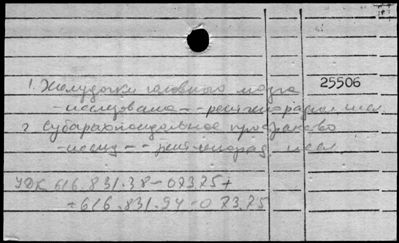 1. Желудочки головного мозга 25506
- исследования -- рентгенография иссл
2 Субарахноидальное пространство
- исслед -- рентгенограф. иссл
УДК 616.831.38-073.75+
+616.831.94-073.75